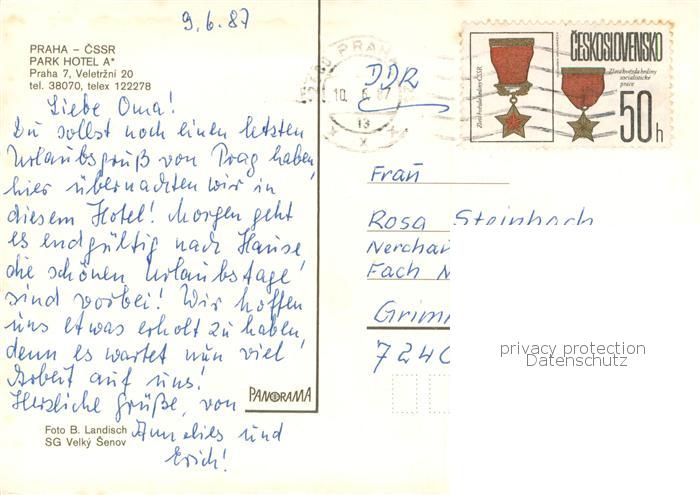 9.6.87
PRAHA – ČSSR
PARK HOTEL A*
Praha 7, Veletržní 20
tel. 38070, telex 122278
Liebe Oma!
Du sollst noch einen letzten
Urlaubsgruß von Prag haben,
hier übernachten wir in
diesem Hotel! Morgen geht
es endgültig nach Hause,
die schönen Urlaubstage
sind vorbei! Wir hoffen
uns etwas erholt zu haben,
denn es wartet nun viel
Arbeit auf uns!
Herzliche Grüße, von
Annelies und
Erich!
PANORAMA
Foto B. Landisch
SG Velký Šenov
PRAHA
10. 6. 87
13
X
DDR
ČESKOSLOVENSKO
Zlatá hvězda ČSSR
Zlatá hvězda hrdiny
socialistické
práce
50 h
Frau
Rosa Steinbach
Nerchau
Fach N
Grimm
7240
privacy protection
Datenschutz